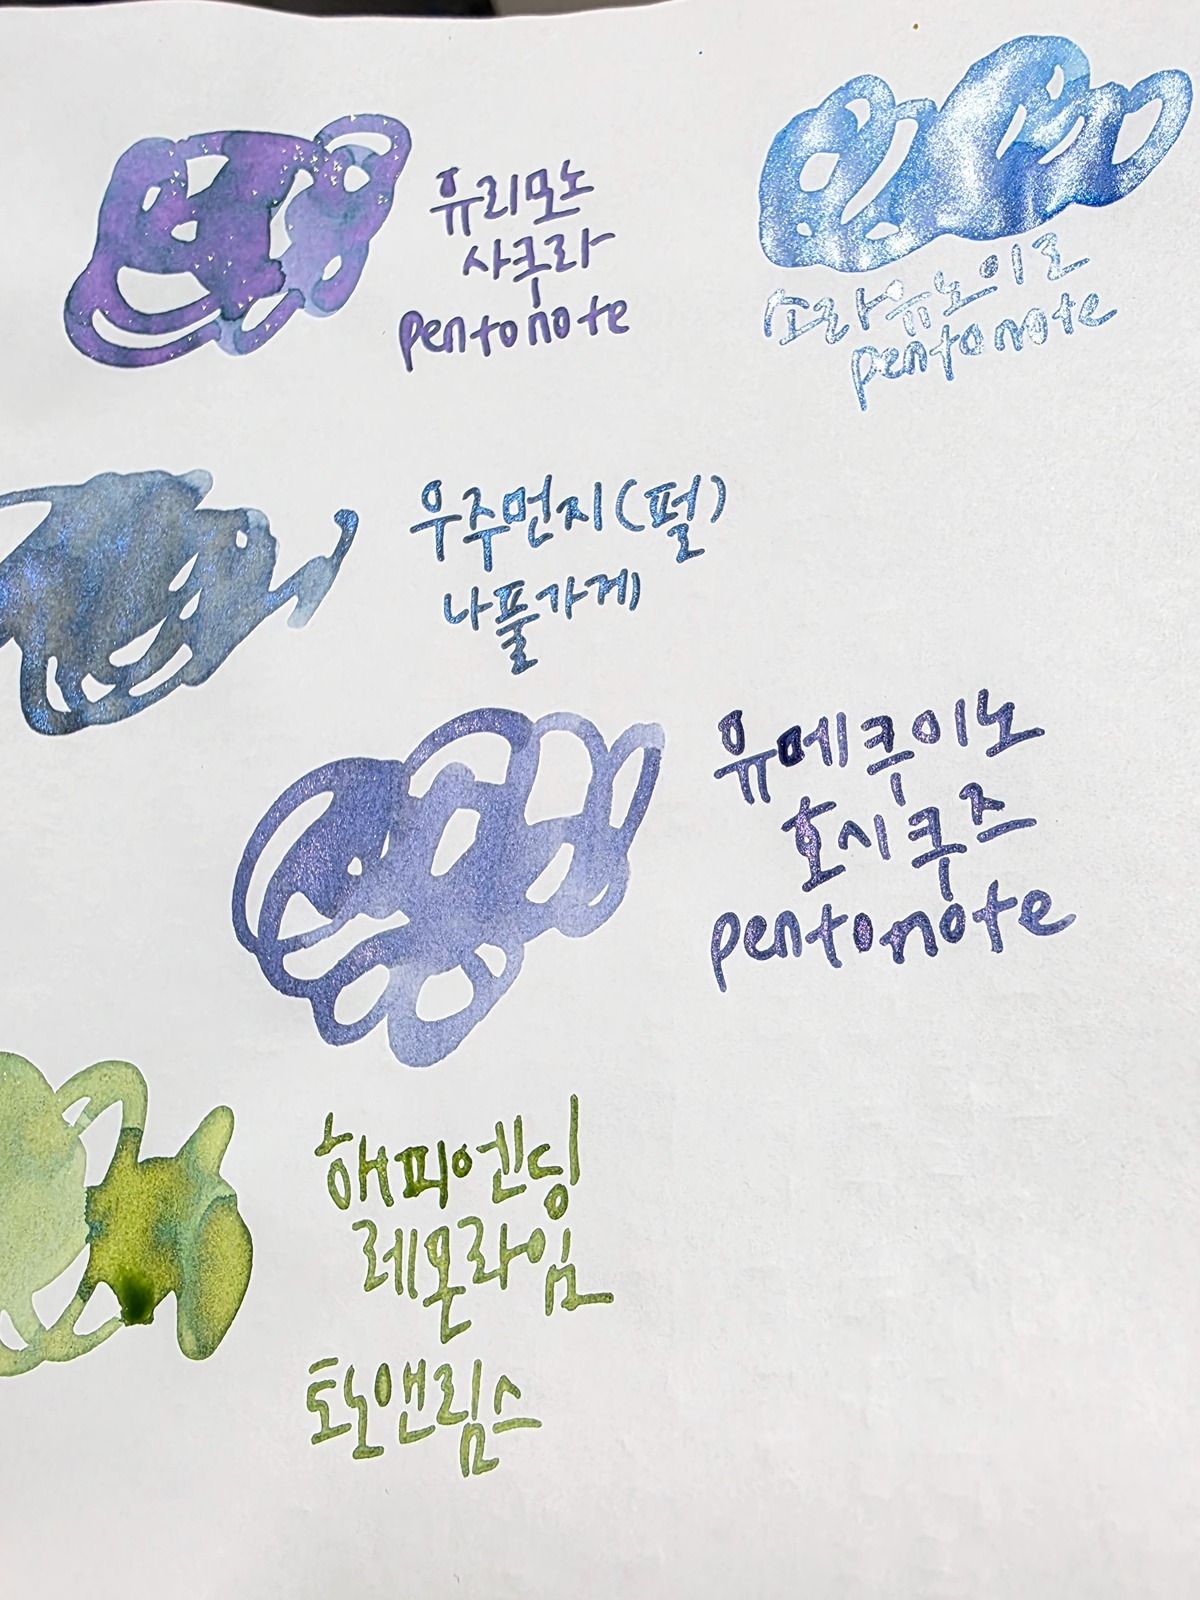 유리모노
사쿠라
pentonote
소라유노이로
pentonote
우주먼지(펄)
나풀가게
유메쿠이노
호시쿠즈
pentonote
해피엔딩
레몬라임
토노앤림스